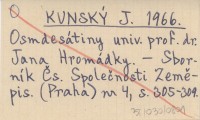 KUNSKÝ J. 1966.
Osmdesátiny univ. prof. dr.
Jana Hromádky. – Sbor-
ník Čs. Společnosti Země-
pis. (Praha) nr 4, s. 305-309.